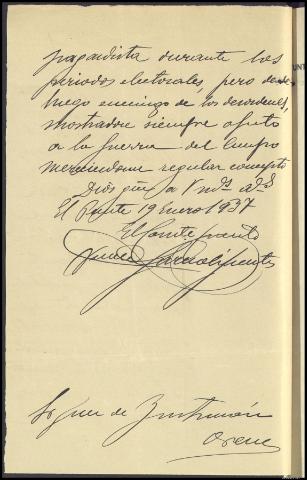 pagandista durante los
periodos electorales, pero desde
luego enemigo de los desordenes,
mostradose siempre afecto
a la Guerra del Cuerpo
mereciendome regular concepto
Dios gue a V muchos años
El Puente 19 Enero 1937
El Comte puesto
Sr Juez de Instrucción
Orense
UNI